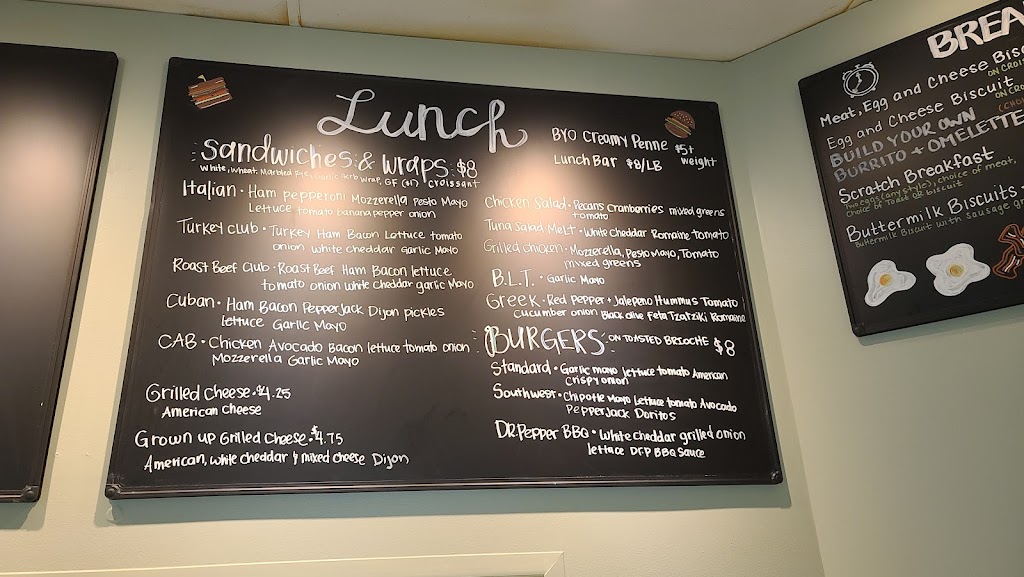 Lunch
Sandwiches & Wraps $8
White, Wheat, Marbled Rye, Garlic Herb Wrap, GF (+$1) Croissant
Italian • Ham pepperoni Mozzerella Pesto Mayo
Lettuce tomato banana pepper onion
Turkey Club • Turkey Ham Bacon Lettuce tomato
onion white cheddar Garlic Mayo
Roast Beef Club • Roast Beef Ham Bacon lettuce
tomato onion white cheddar garlic Mayo
Cuban • Ham Bacon PepperJack Dijon pickles
lettuce Garlic Mayo
CAB • Chicken Avocado Bacon lettuce tomato onion
Mozzerella Garlic Mayo
Grilled Cheese • $4.25
American Cheese
Grown up Grilled Cheese • $4.75
American, white cheddar & mixed cheese Dijon
BYO Creamy Penne $5+
weight
Lunch Bar $8/LB
Chicken Salad • Pecans Cranberries mixed greens
tomato
Tuna Salad Melt • White Cheddar Romaine tomato
Grilled Chicken • Mozzerella, Pesto Mayo, Tomato
mixed greens
B.L.T. • Garlic Mayo
Greek • Red Pepper + Jalepeno Hummus Tomato
cucumber onion Black olive Feta Tzatziki Romaine
BURGERS ON TOASTED BRIOCHE $8
Standard • Garlic mayo lettuce tomato American
crispy onion
Southwest • Chipotle Mayo Lettuce tomato Avocado
PepperJack Doritos
DR. Pepper BBQ • White cheddar grilled onion
lettuce DrP BBQ Sauce
BREA
Meat, Egg and Cheese Bisc
ON CROIS
Egg and Cheese Biscuit
ON CRO
BUILD YOUR OWN (CHO
BURRITO + OMELETTE
Scratch Breakfast
Two eggs (any style), choice of meat,
Choice of Toast OR biscuit
Buttermilk Biscuits
Buttermilk Biscuit with sausage gr